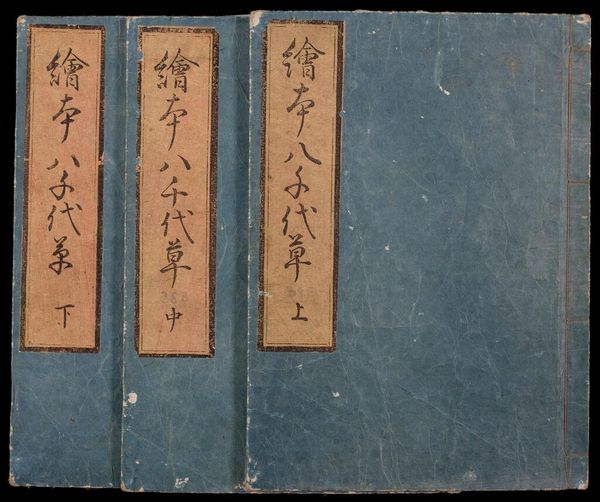 繪本八千代草 上
繪本八千代草 中
繪本八千代草 下